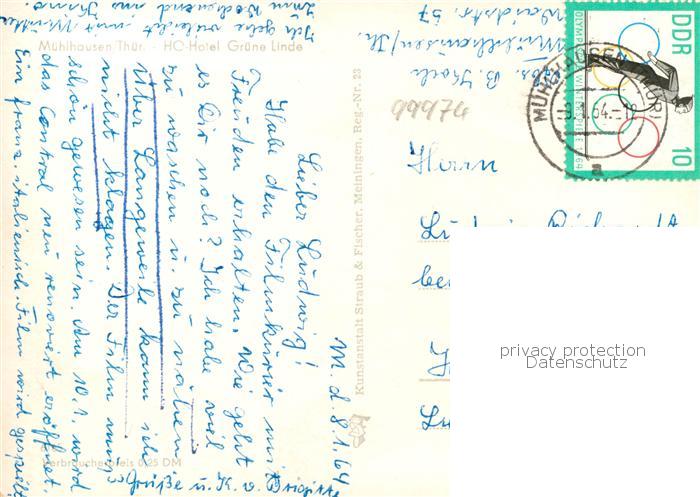 Mühlhausen/Thür. - HO-Hotel Grüne Linde
M. d. 8.1.64
Lieber Ludwig!
Habe den Filmkurier mit
Freuden erhalten. Wie geht
es Dir noch? Ich habe viel
zu waschen u. zu nähen
über Langeweile kann ich
nicht klagen. Der Film muß
schön gewesen sein. Am 10.1. wird
das Central neu renoviert eröffnet.
Ein franz. italienisch. Film wird gespielt
Ich gehe vielleicht mit
zum Wochenend ins Kino.
Grüße u. K. v. Brigitte
Verbraucherpreis 0,25 DM
Kunstanstalt Straub & Fischer, Meiningen, Reg.-Nr. 23
Abs. B. Koch
Mühlhausen/Th.
57
DDR
OLYMPISCHE WINTERSPIELE 1964
10
MÜHLHAUSEN (THÜR)
64.-12
a
Herrn
privacy protection
Datenschutz